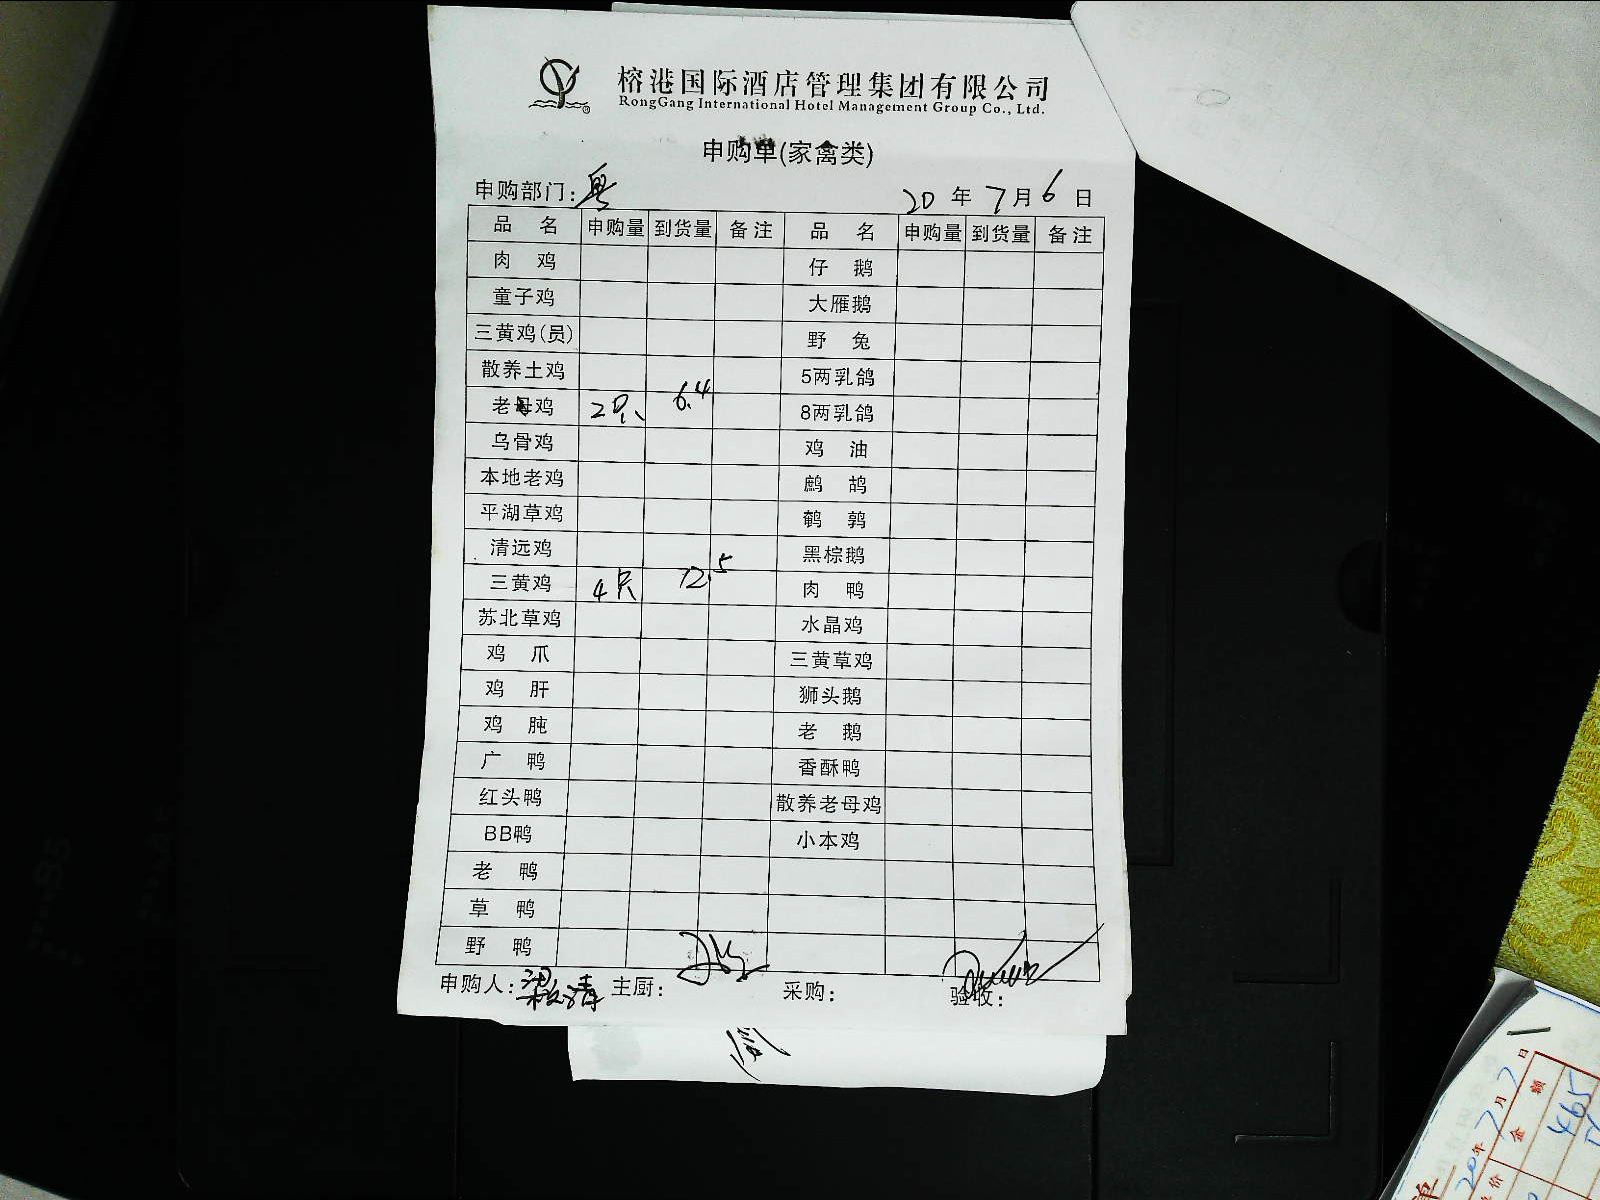 榕港国际酒店管理集团有限公司
RongGang International Hotel Management Group Co., Ltd.
申购单(家禽类)
申购部门: 粤 20 年 7 月 6 日
品 名 申购量 到货量 备注 品 名 申购量 到货量 备注
肉 鸡 仔 鹅
童子鸡 大雁鹅
三黄鸡(员) 野 兔
散养土鸡 5两乳鸽
老母鸡 2只 6.4 8两乳鸽
乌骨鸡 鸡 油
本地老鸡 鹧 鸪
平湖草鸡 鹌 鹑
清远鸡 黑棕鹅
三黄鸡 4只 12.5 肉 鸭
苏北草鸡 水晶鸡
鸡 爪 三黄草鸡
鸡 肝 狮头鹅
鸡 肫 老 鹅
广 鸭 香酥鸭
红头鸭 散养老母鸡
BB鸭 小本鸡
老 鸭
草 鸭
野 鸭
申购人: 主厨: 采购: 验收:
单
20年 7月 7日
价 金 额
465